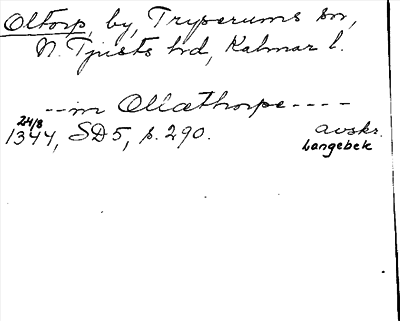 Oltorp, by, Tryserums sn,
N. Tjusts hd, Kalmar l.
--in Ollæthorpe----
24/8
1344, SD5, s. 290. avskr.
Langebek